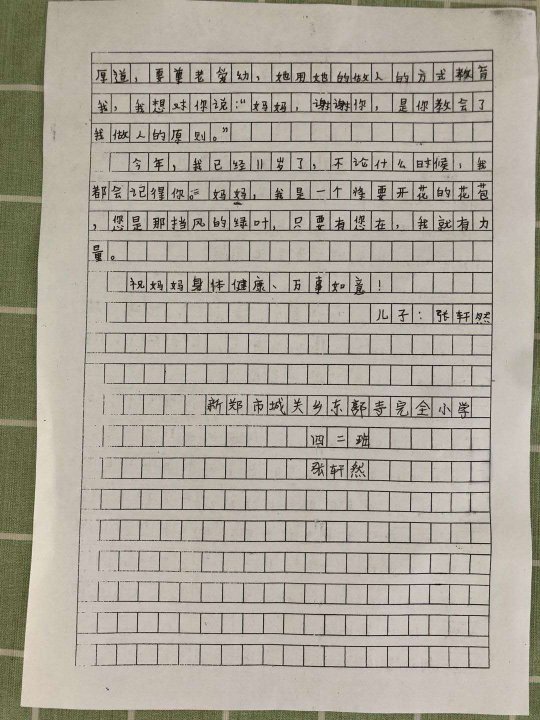 厚道，要尊老爱幼，她用她的做人的方式教育
我，我想对你说：“妈妈，谢谢你，是你教会了
我做人的原则。”
今年，我已经11岁了，不论什么时候，我
都会记得你。妈妈，我是一个惟要开花的花苞
，您是那挡风的绿叶，只要有您在，我就有力
量。
祝妈妈身体健康、万事如意！
儿子：张轩然
新郑市城关乡东郭寺完全小学
四二班
张轩然